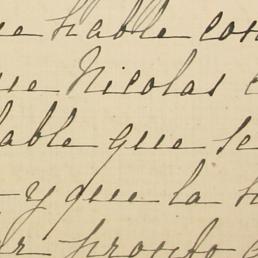 ue hable con
ue Nicolas
able que se
y que la
ar pronto